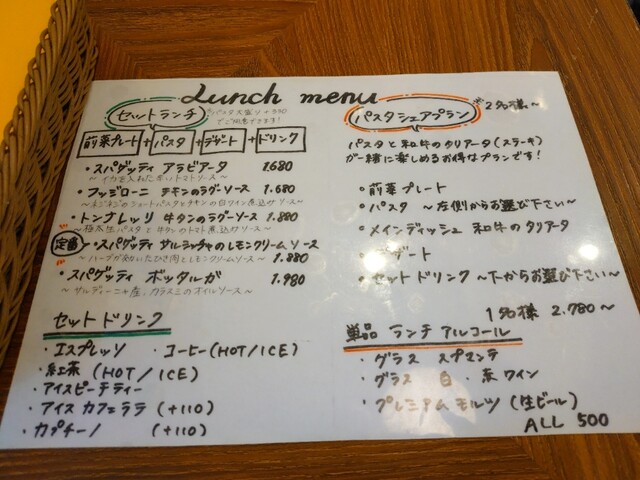 Lunch menu
セットランチ
パスタ大盛り +330
でご用意できます!
前菜プレート + パスタ + デザート + ドリンク
・スパゲッティ アラビアータ 1.680
〜イカを入れた辛いトマトソース〜
・フッジローニ チキンのラグーソース 1.680
のショートパスタとチキンの白ワイン煮込みソース〜
・トンナレッリ 牛タンのラグーソース 1.880
〜極太生パスタと牛タンのトマト煮込みソース〜
定番 ・スパゲッティ サルシッチャのレモンクリームソース
〜ハーブが効いたひき肉とレモンクリームソース〜 1.880
・スパゲッティ ボッタルガ 1.980
〜サルディーニャ産、カラスミのオイルソース〜
セットドリンク
・エスプレッソ ・コーヒー(HOT/ICE)
・紅茶(HOT/ICE)
・アイスピーチティー
・アイスカフェラテ (+110)
・カプチーノ (+110)
パスタシェアプラン
※2名様〜
パスタと和牛のタリアータ(ステーキ)
が一緒に楽しめるお得なプランです!
・前菜プレート
・パスタ 〜左側からお選び下さい〜
・メインディッシュ 和牛のタリアータ
・デザート
・セットドリンク〜下からお選び下さい〜
1名様 2.780〜
単品 ランチアルコール
・グラス スプマンテ
・グラス 白・赤ワイン
・プレミアムモルツ(生ビール)
ALL 500